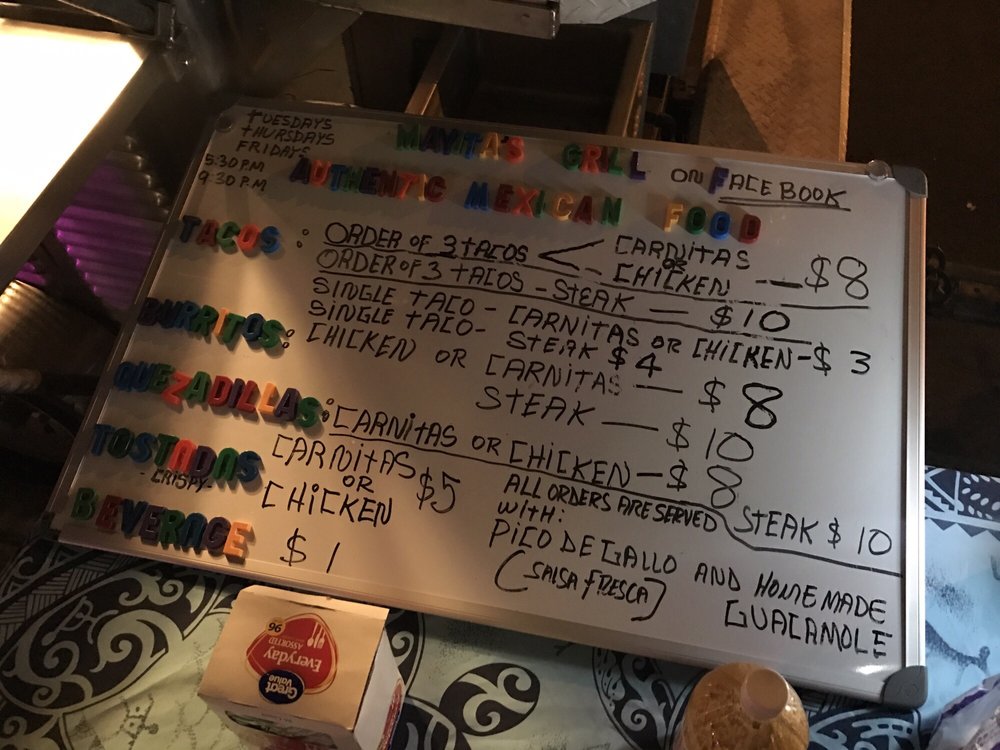 TUESDAYS
THURSDAYS
FRIDAYS
5:30 P.M
9:30 P.M
MAYITA'S GRILL ON FACEBOOK
AUTHENTIC MEXICAN FOOD
TACOS: ORDER OF 3 TACOS < CARNITAS
OR
CHICKEN — $8
ORDER OF 3 TACOS - STEAK — $10
SINGLE TACO - CARNITAS OR CHICKEN - $3
SINGLE TACO - STEAK $4
BURRITOS: CHICKEN OR CARNITAS — $8
STEAK — $10
QUEZADILLAS: CARNITAS OR CHICKEN - $8
STEAK $10
TOSTADAS CARNITAS
-CRISPY- OR $5
CHICKEN
BEVERAGE $1
ALL ORDERS ARE SERVED
WITH:
PICO DE GALLO AND HOMEMADE
(SALSA FRESCA) GUACAMOLE
96
Everyday
ASSORTED
Great
Value